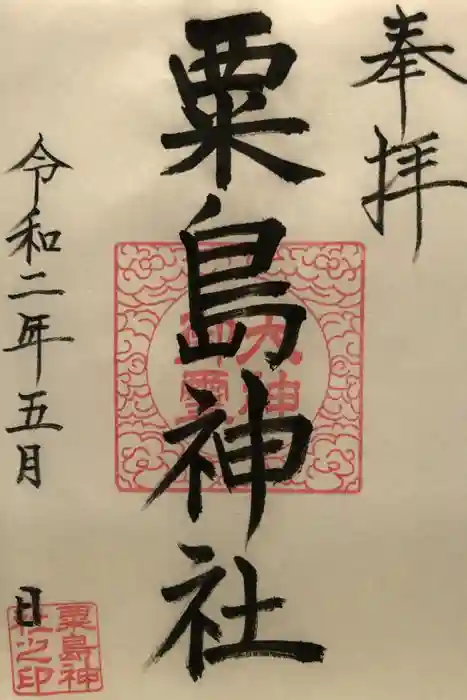 奉拝
粟島神社
令和二年五月 日
大神
御霊
粟島神
社之印